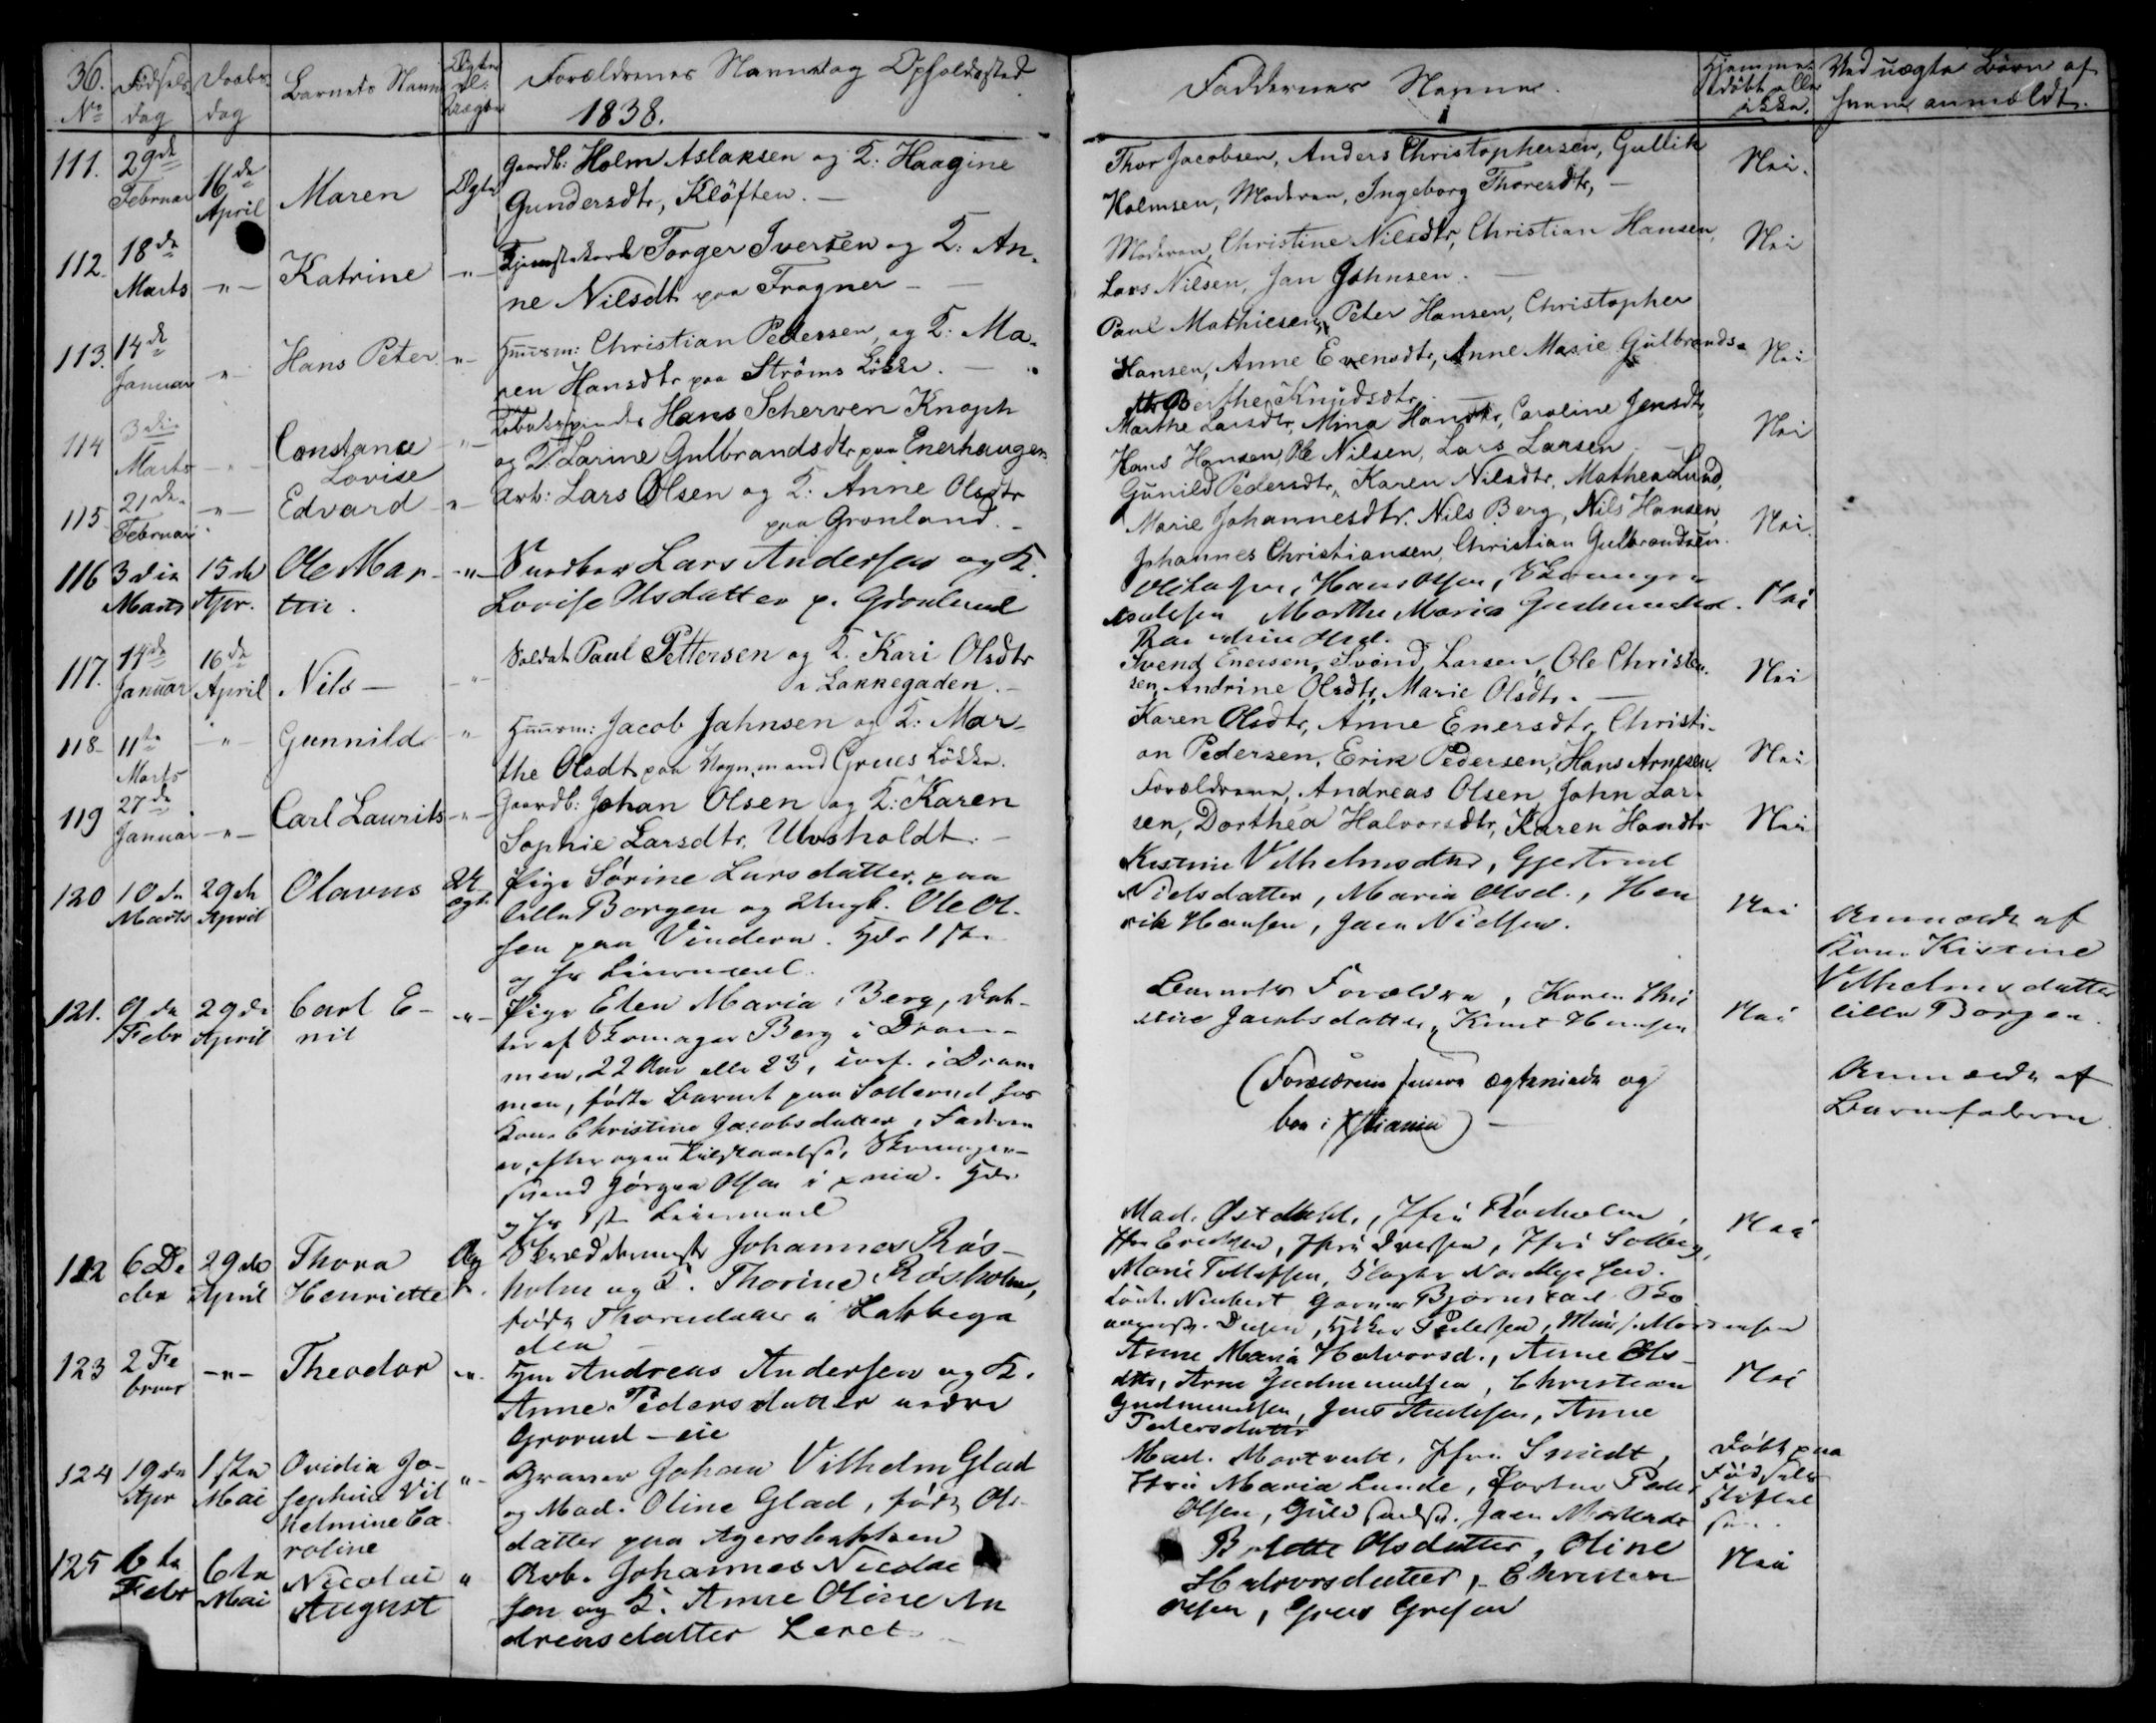 36.
No
Fødsels-
dag
Daabs-
dag
Barnets Navn
Ægte
el.
uægte
Forældrenes Navne og Opholdssted
1838.
Faddernes Navne.
Hjemme-
døbt eller
ikke.
Ved uægte Børn af
hvem anmeldt.
111. 29de Februar 16de April Maren Ægte
Gaardb: Holm Aslaksen og K: Haagine
Gundersdtr, Kløften. —
Thor Jacobsen, Anders Christophersen, Gullik
Holmsen, Moderen, Ingeborg Thoresdtr, —
Nei.
112. 18de Marts —"— Katrine —"—
Tjenestekarl Torger Iversen og K: An-
ne Nilsdtr paa Frogner —
Moderen, Christine Nilsdtr, Christian Hansen,
Lars Nilsen, Jan Johnsen. —
Nei
113. 14de Januar —"— Hans Peter —"—
Huusm: Christian Pedersen, og K: Ma-
ren Hansdtr paa Strøms Løkke. —
Paul Mathiesen, Peter Hansen, Christopher
Hansen, Anne Evensdtr, Anne Marie Gulbrands-
dtr Berthe Knudsdtr.
Nei
114 3die Marts —"— Constance
Lovise —"—
Tobaksspinder Hans Scherven Knoph
og K. Larine Gulbrandsdtr paa Enerhaugen
Marthe Larsdtr, Mina Hansdtr, Caroline Jensdtr,
Hans Hansen, Ole Nilsen, Lars Larsen —
Nei
115 21de Februar —"— Edvard —"—
Arb: Lars Olsen og K: Anne Olsdtr
paa Grønland. —
Gunild Pedersdtr, Karen Nilsdtr. Mathea Lund,
Marie Johannesdtr. Nils Berg, Nils Hansen,
Johannes Christiansen, Christian Gulbrandsen.
Nei.
116 3die Marts 15de Apr. Ole Mar-
tin. —"—
Lars Andersen og K.
Lovise Olsdatter p. Grønland
Hans Olsen,
Marthe Maria
Nei
117. 14de Januar 16de April Nils — —"—
Soldat Paul Pettersen og K. Kari Olsdtr
i Lakkegaden. —
Svend Enersen, Svend Larsen, Ole Christen-
sen, Andrine Olsdtr, Marie Olsdtr. —
Nei
118. 11te Marts —"— Gunnild "
Huusm: Jacob Jahnsen og K: Mar-
the Olsdtr paa Vognmand Grues Løkke.
Karen Olsdtr, Anne Enersdtr, Christi-
an Pedersen, Erik Pedersen, Hans Arnesen.
Nei
119 27de Januar —"— Carl Laurits —"—
Gaardb: Johan Olsen og K: Karen
Sophie Larsdtr, Ulvsholdt. —
Forældrene, Andreas Olsen, John Lar-
sen, Dorthea Halvorsdtr, Karen Hansdtr
Nei
120 10de Marts 29de April Olavus Uægte
Pige Sørine Larsdatter, paa
lille Borgen og Ungk. Ole Ol-
sen paa Vindern. Hds 1ste
og hs Leiermaal.
Kistine Vilhelmsdtr, Gjertrud
Nielsdatter, Maria Olsd., Hen
rik Hansen, Jacn Nielsen.
Nei
Anmeldt af
Kone Kistine
Vilhelmsdatter
lille Borgen.
121. 9de Febr 29de April Carl E-
mil —"—
Pige Elen Maria Berg, Dat-
ter af Skomager Berg i Dram-
men, 22 Aar eller 23, conf. i Dram
men, fødte Barnet paa Sollerud hos
Kone Christine Jacobsdatter, Faderen
er, efter egen Tilstaaelse, Skomager-
svend Jørgen Olsen i Xania. Hds
og hs 1ste Leiermaal
Barnets Forældre, Karen Chri
stine Jacobsdatter, Knut Hansen
(Forældrene senere ægteviede og
boe i Xstiania) —
Nei
Anmeldt af
Barnefaderen
122 6 De
cbr 29de April Thora
Henriette Æg
t.
Skræddermester Johannes Røs-
holm og K. Thorine Røsholm,
fødte Thorsdatter i Lakkega
den —
Mad. Østdahl, Jfru Røsholm,
Jfru Erichsen, Jfru Iversen, Jfru Solberg,
Marie Tollefsen, Slagter
Nei
123 2 Fe
bruar —"— Theodor —"—
Hm Andreas Andersen og K.
Anne Pedersdatter nedre
Grorud - eie
Anne Maria Halvorsd., Anne Ols-
dtr, Arne Gudmundsen, Christian
Gudmundsen, Jens Andersen, Anne
Pedersdatter
Nei
124 19de Apr 1ste Mai Ovidia Jo-
sephine Vil
helmine Ca
roline —"—
Graver Johan Vilhelm Glad
og Mad. Oline Glad, født Ols-
datter paa Agersbakken
Mad. Mortvedt, Jfru Smidt,
Jfru Maria Lunde, Peder
Olsen,
Døbt paa
Fødsels
Stiftel
sen.
125 6te Febr 6te Mai Nicolai
August "
Arb. Johannes Nicolai
sen og K. Anne Oline An
dreasdatter Leret —
Bolette Olsdatter, Oline
Halvorsdatter, Christian
Olsen,
Nei